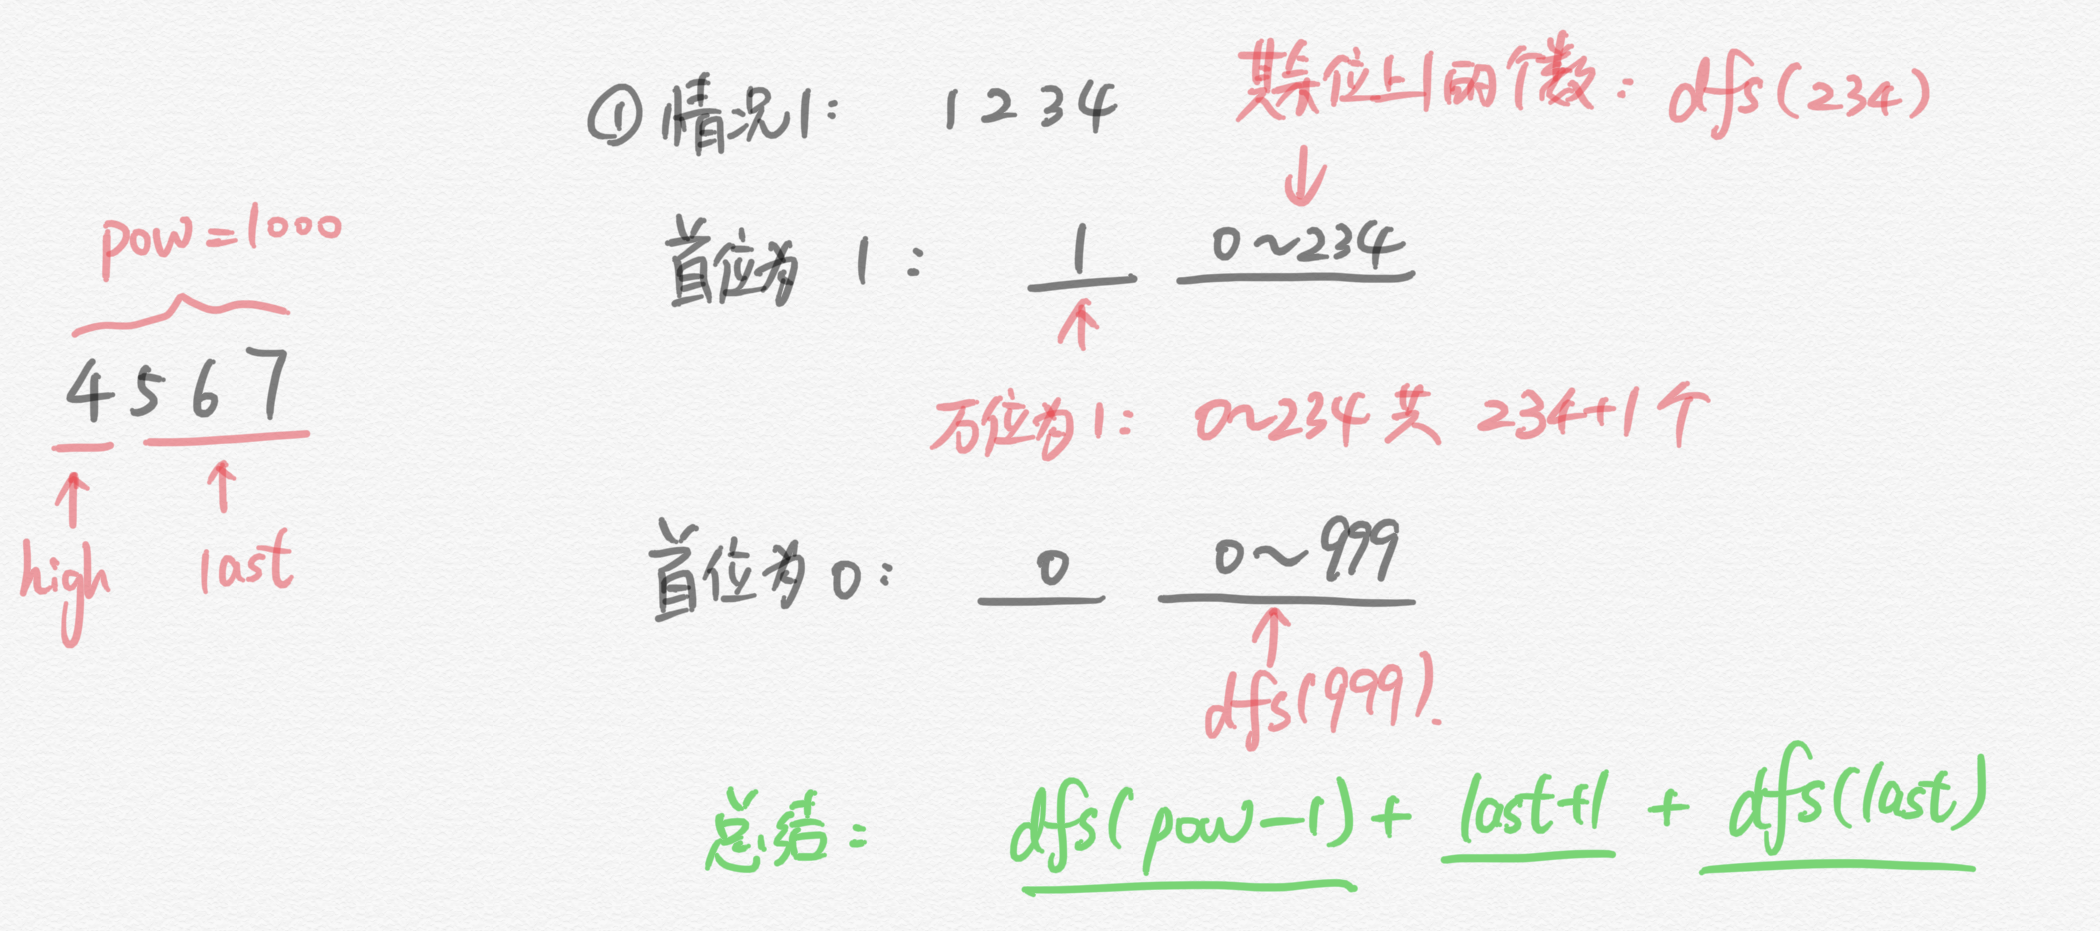 pow=1000
4567
high
last
①情况1: 1234
其余位上1的个数: dfs(234)
首位为 1: 1 0~234
万位为1: 0~234 共 234+1个
首位为0: 0 0~999
dfs(999).
总结: dfs(pow-1)+ last+1 + dfs(last)